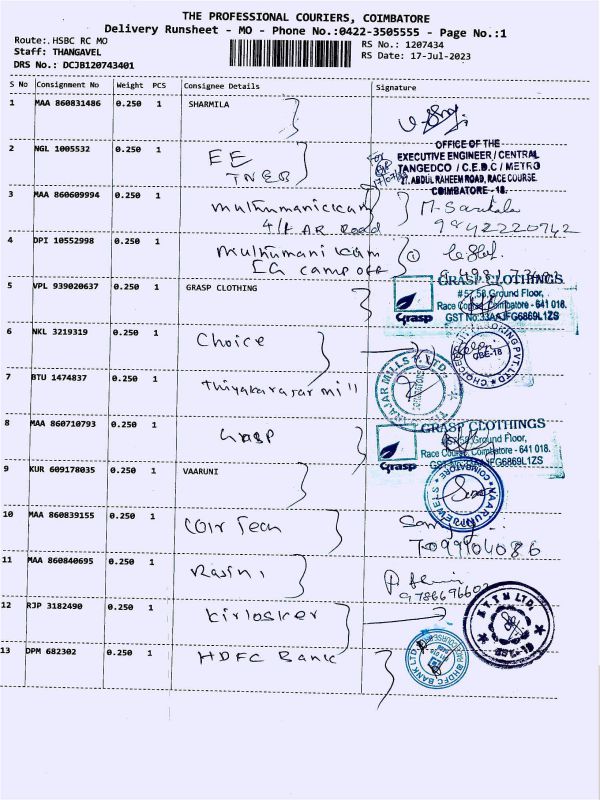 THE PROFESSIONAL COURIERS, COIMBATORE
Delivery Runsheet - MO - Phone No.:0422-3505555 - Page No.:1
Route:.HSBC RC MO
RS No.: 1207434
Staff: THANGAVEL
RS Date: 17-Jul-2023
DRS No.: DCJB120743401
S No Consignment No Weight PCS Consignee Details Signature
1 MAA 860831486 0.250 1 SHARMILA
2 NGL 1005532 0.250 1 EE
TNEB
OFFICE OF THE
EXECUTIVE ENGINEER / CENTRAL
TANGEDCO / C.E.D.C / METRO
ABDUL RAHEEM ROAD, RACE COURSE
COIMBATORE - 18.
3 MAA 860609994 0.250 1 muthumanickam
4/1 AR Road
9842220742
4 DPI 10552998 0.250 1 muthumanickam
IG camp off
5 VPL 939020637 0.250 1 GRASP CLOTHING
GRASP CLOTHINGS
# 57,58, Ground Floor,
Race Course, Coimbatore - 641 018.
Grasp GST No:33AAJFG6869L1ZS
6 NKL 3219319 0.250 1 Choice
CBE-18
7 BTU 1474837 0.250 1 thiyakararar mill
8 MAA 860710793 0.250 1 Grasp
GRASP CLOTHINGS
57,58, Ground Floor,
Race Course, Coimbatore - 641 018.
Grasp GST No:33AAJFG6869L1ZS
9 KUR 609178035 0.250 1 VAARUNI
VAARUNI JEWELS
COIMBATORE
10 MAA 860839155 0.250 1 Coir Tech
7099904086
11 MAA 860840695 0.250 1 Rasini
12 RJP 3182490 0.250 1 kirlosker
13 DPM 682302 0.250 1 HDFC Bank
HDFC BANK LTD.